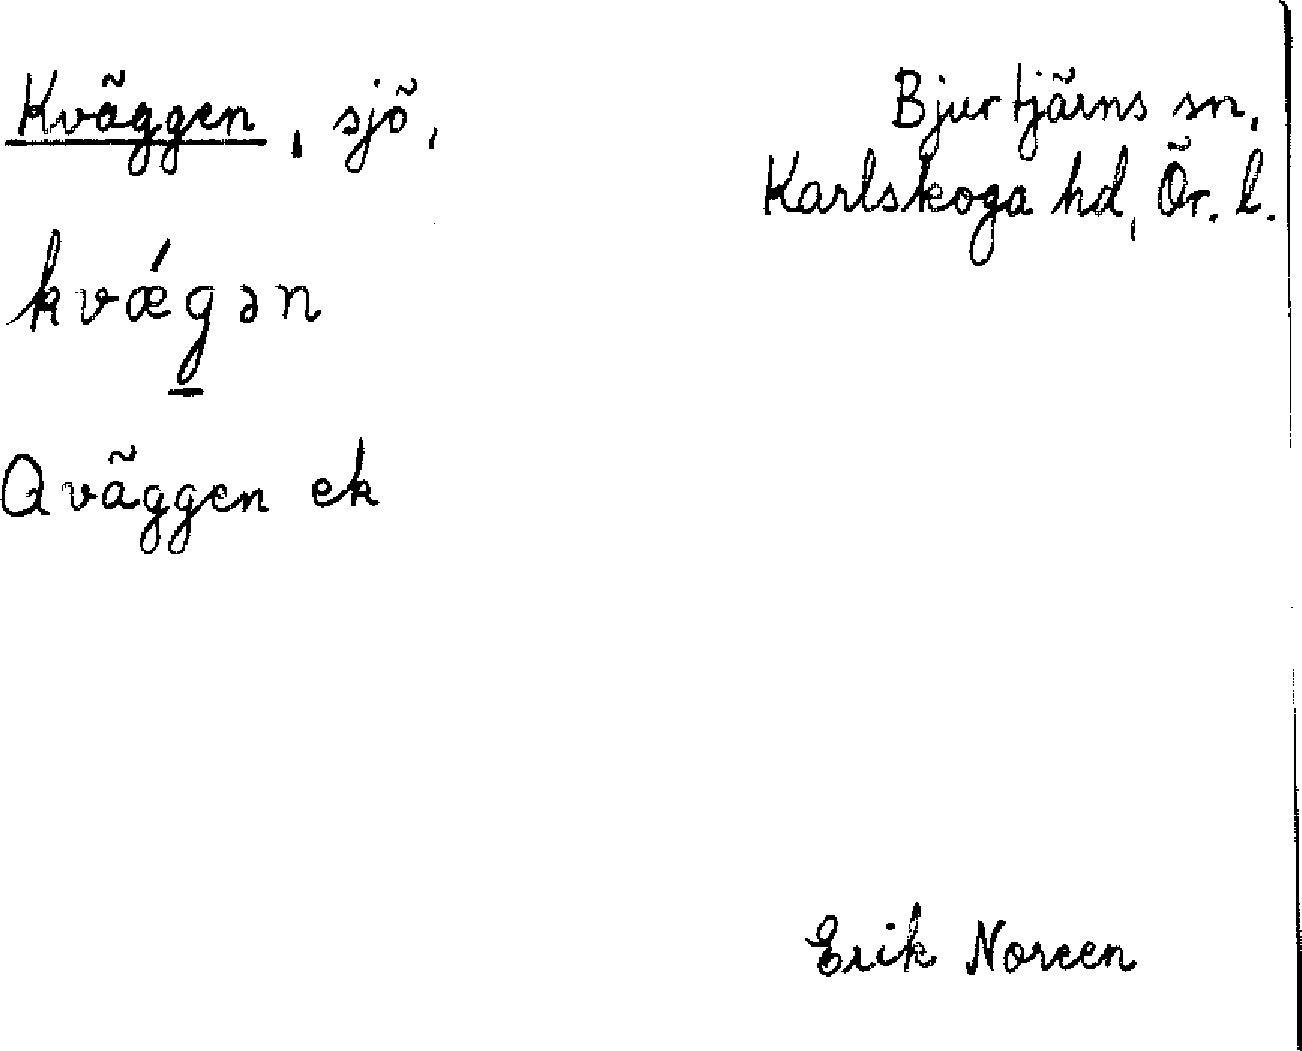 Kväggen, sjö,
Bjurtjärns sn,
Karlskoga hd, Ör. l.
kvǽg̱ən
Qväggen ek
Erik Noreen